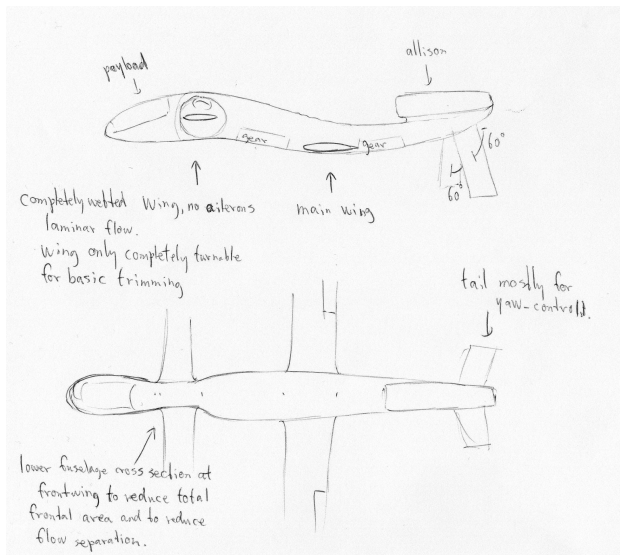 allison
payload
gear
gear
60°
60°
completely wetted wing, no ailerons
laminar flow.
wing only completely turnable
for basic trimming
main wing
tail mostly for
yaw-controll.
lower fuselage cross section at
frontwing to reduce total
frontal area and to reduce
flow separation.